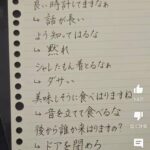 良い時計してますなぁ
↳ 話が長い
よう知ってはるな
↳ 黙れ
シャレたもん着とるなぁ
↳ ダサい
美味しそうに食べはりますね
↳ 音を立てて食べるな
後から誰か来はりますか?
↳ ドアを閉めろ